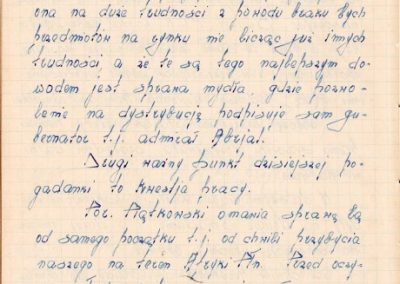 ona na duże trudności z powodu braku tych
przedmiotów na rynku nie licząc już innych
trudności, a że te są tego najlepszym do-
wodem jest sprawa mydła, gdzie pozwo-
lenie na dystrybucję podpisuje sam gu-
bernator t.j. admirał Abrial.
Drugi ważny punkt dzisiejszej po-
gadanki to kwestja pracy.
Por. Piątkowski omawia sprawę tą
od samego początku t.j. od chwili przybycia
naszego na teren Afryki Płn. Przed oczy-